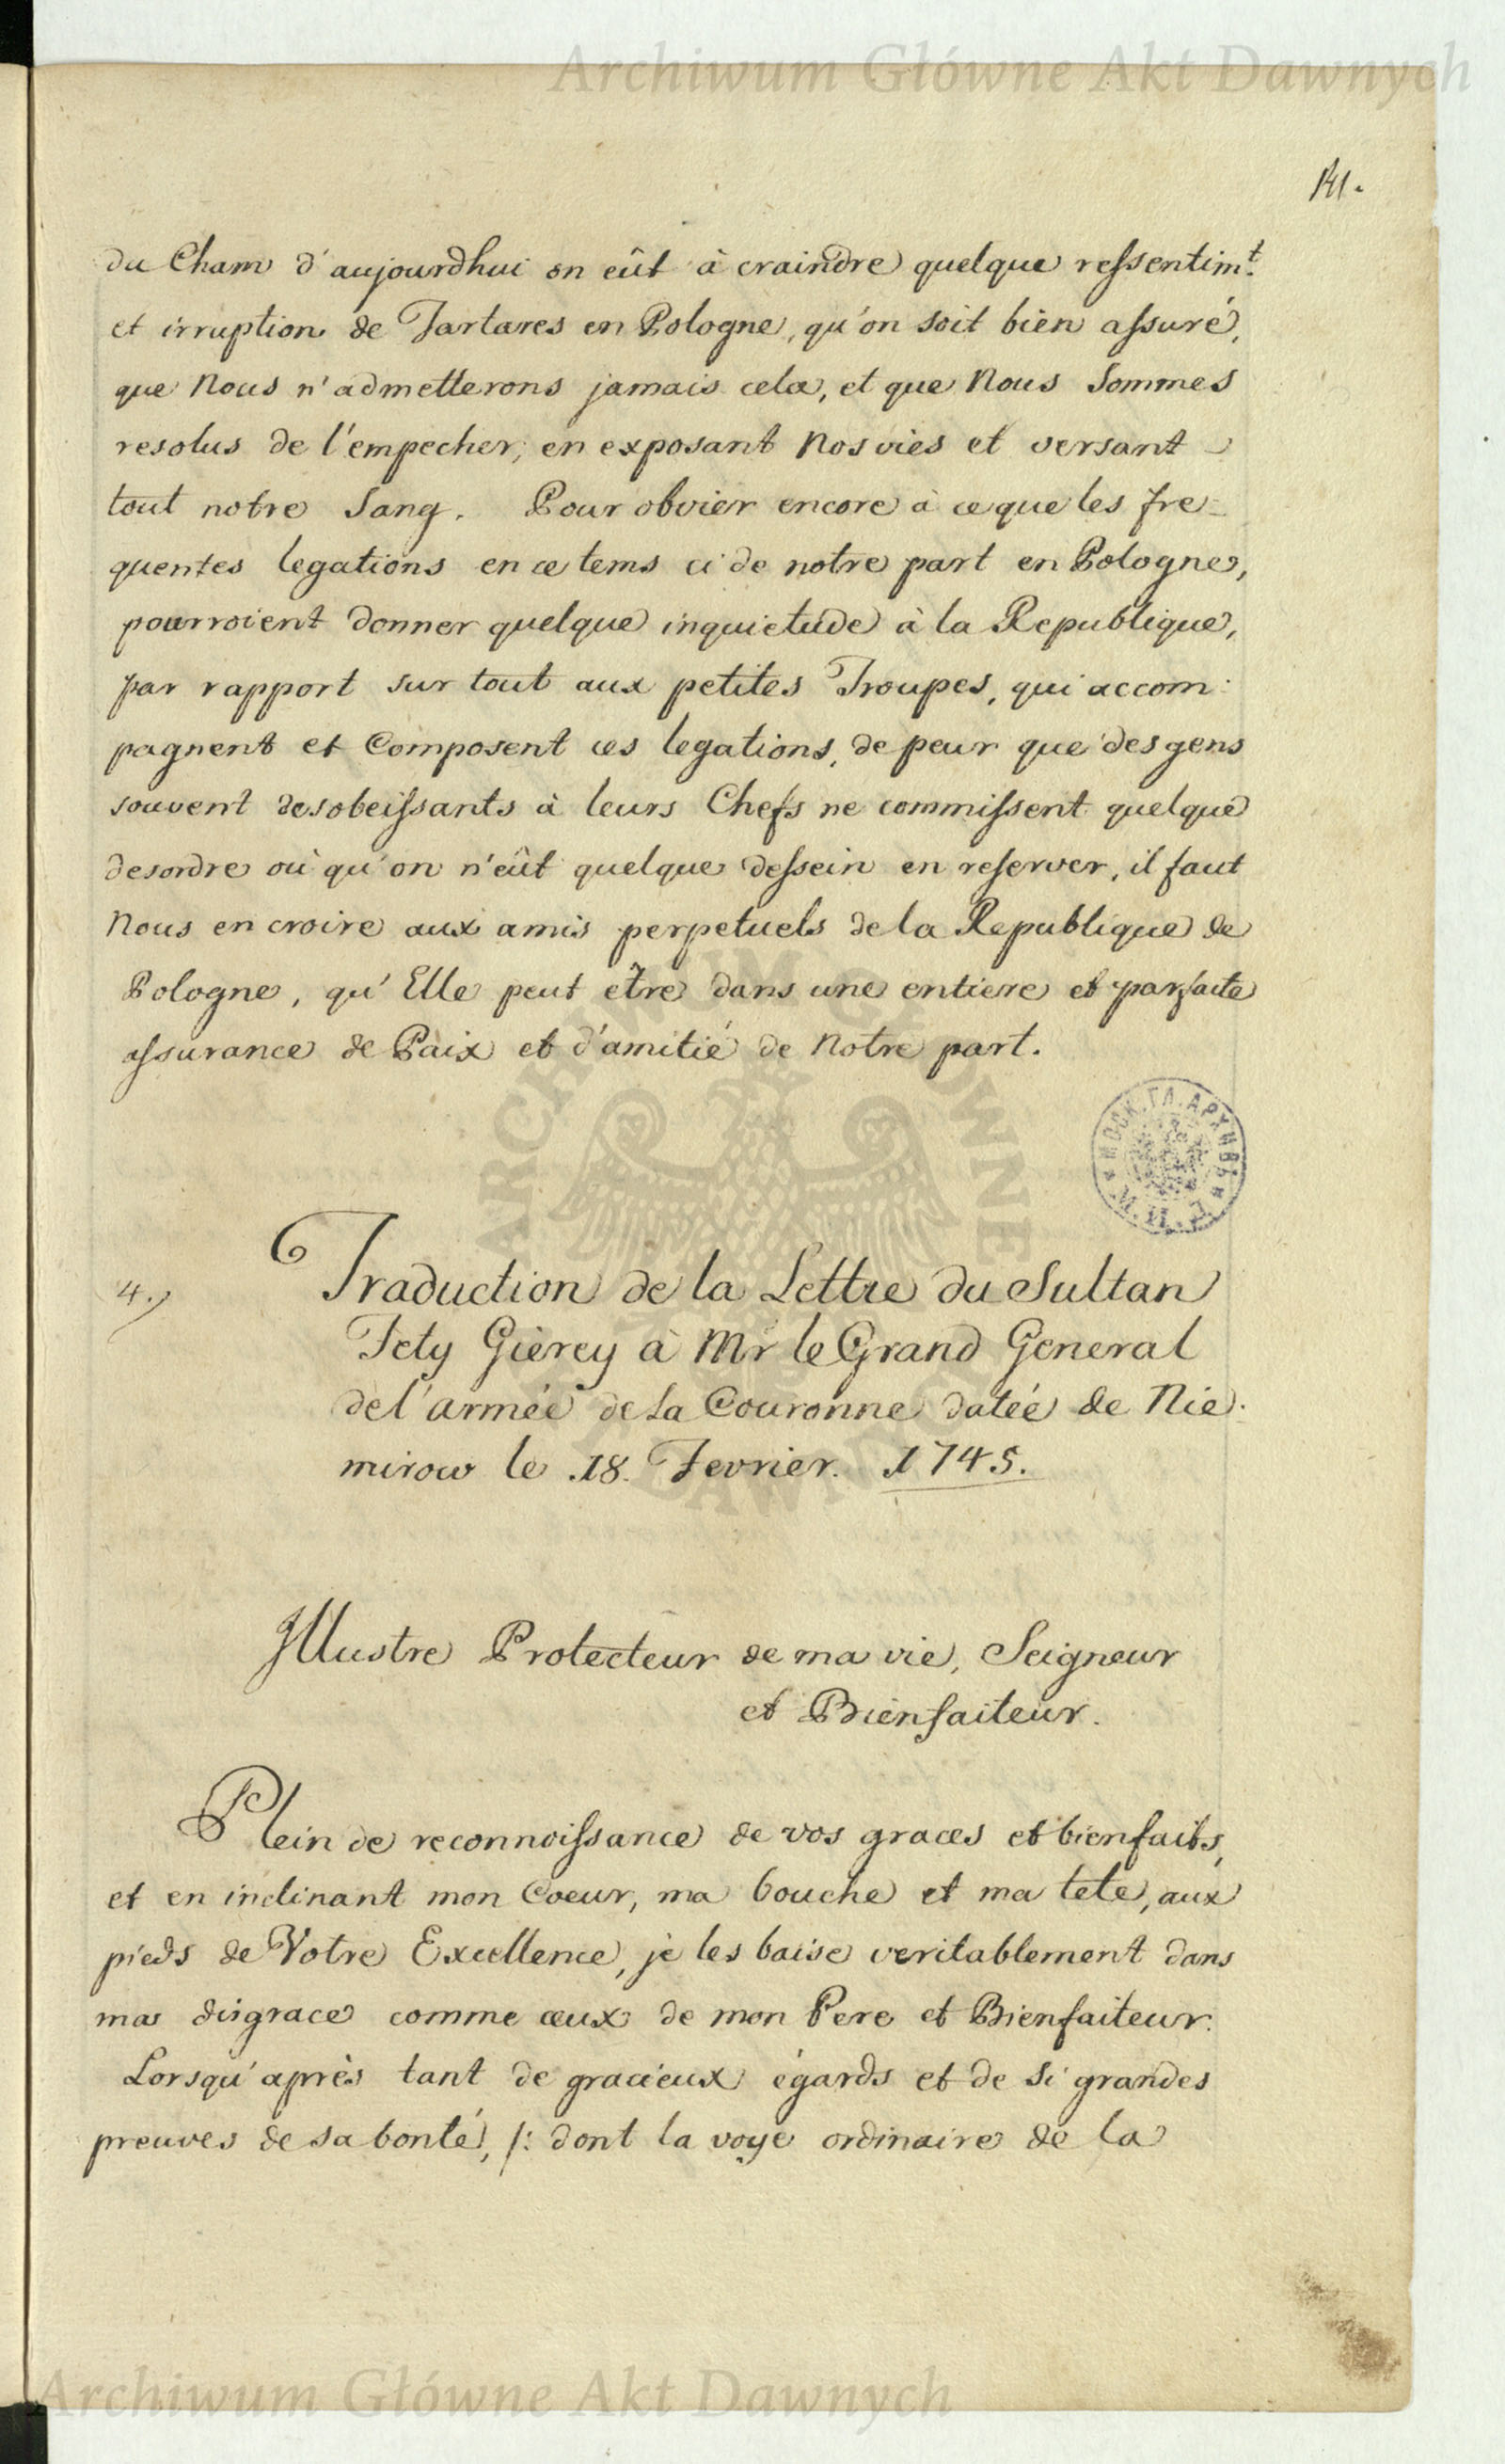 Archiwum Główne Akt Dawnych
141.
du Cham d'aujourdhui on eût à craindre quelque ressentimt.
et irruption de Tartares en Pologne, qu'on soit bien assuré,
que Nous n'admetterons jamais cela, et que Nous Sommes
resolus de l'empecher, en exposant Nos vies et versant
tout notre Sang. Pour obvier encore à ce que les fre-
quentes legations en ce tems ci de notre part en Pologne,
pourroient donner quelque inquietude à la Republique,
par rapport sur tout aux petites Troupes, qui accom-
pagnent et Composent ces legations, de peur que des gens
souvent desobeissants à leurs Chefs ne commissent quelque
desordre où qu'on n'eût quelque dessein en reserver, il faut
Nous en croire aux amis perpetuels de la Republique de
Pologne, qu'Elle peut etre dans une entiere et parfaite
assurance de Paix et d'amitié de Notre part.
МОСК. ГЛ. АРХИВЪ
4.)
Traduction de la Lettre du Sultan
Fety Gièrey à Mr le Grand General
de l'armée de la Couronne datéé de Nie-
mirow le .18. Fevrier. 1745.
Illustre Protecteur de ma vie, Seigneur
et Bienfaiteur.
Plein de reconnoissance de vos graces et bienfaits,
et en inclinant mon Coeur, ma bouche et ma tete, aux
pieds de Votre Excellence, je les baise veritablement dans
ma disgrace comme ceux de mon Pere et Bienfaiteur.
Lorsqu'après tant de gracieux égards et de si grandes
preuves de sa bonté, /: dont la voye ordinaire de la
Archiwum Główne Akt Dawnych